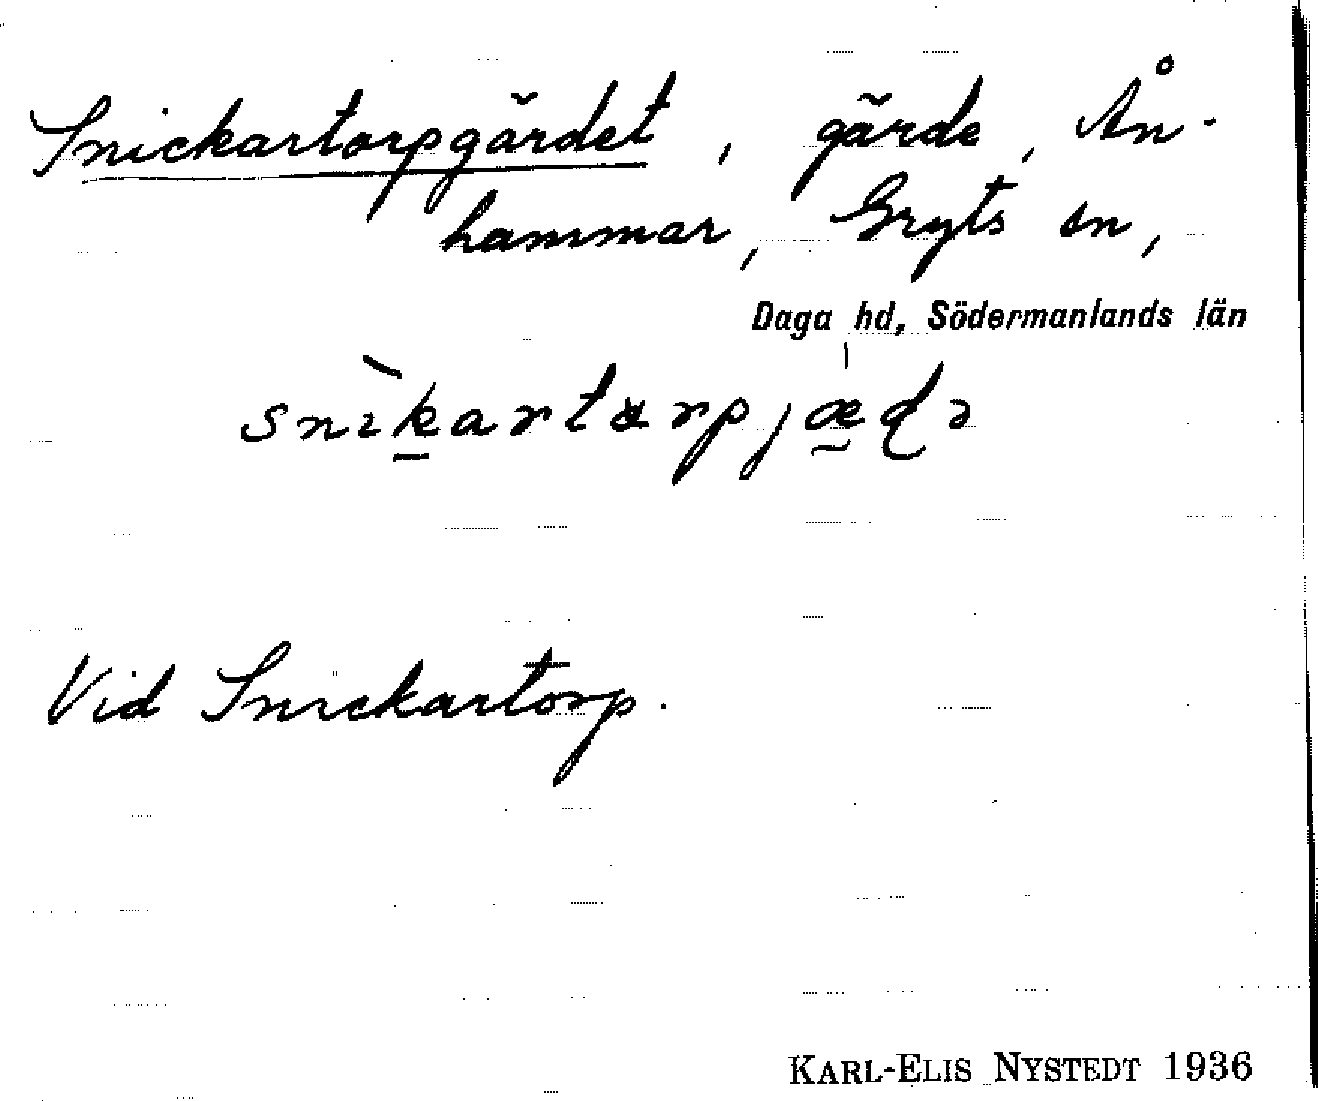 Snickartorpgärdet, gärde, Ån-
hammar, Gryts sn,
Daga hd, Södermanlands län
Vid Snickartorp.
KARL-ELIS NYSTEDT 1936